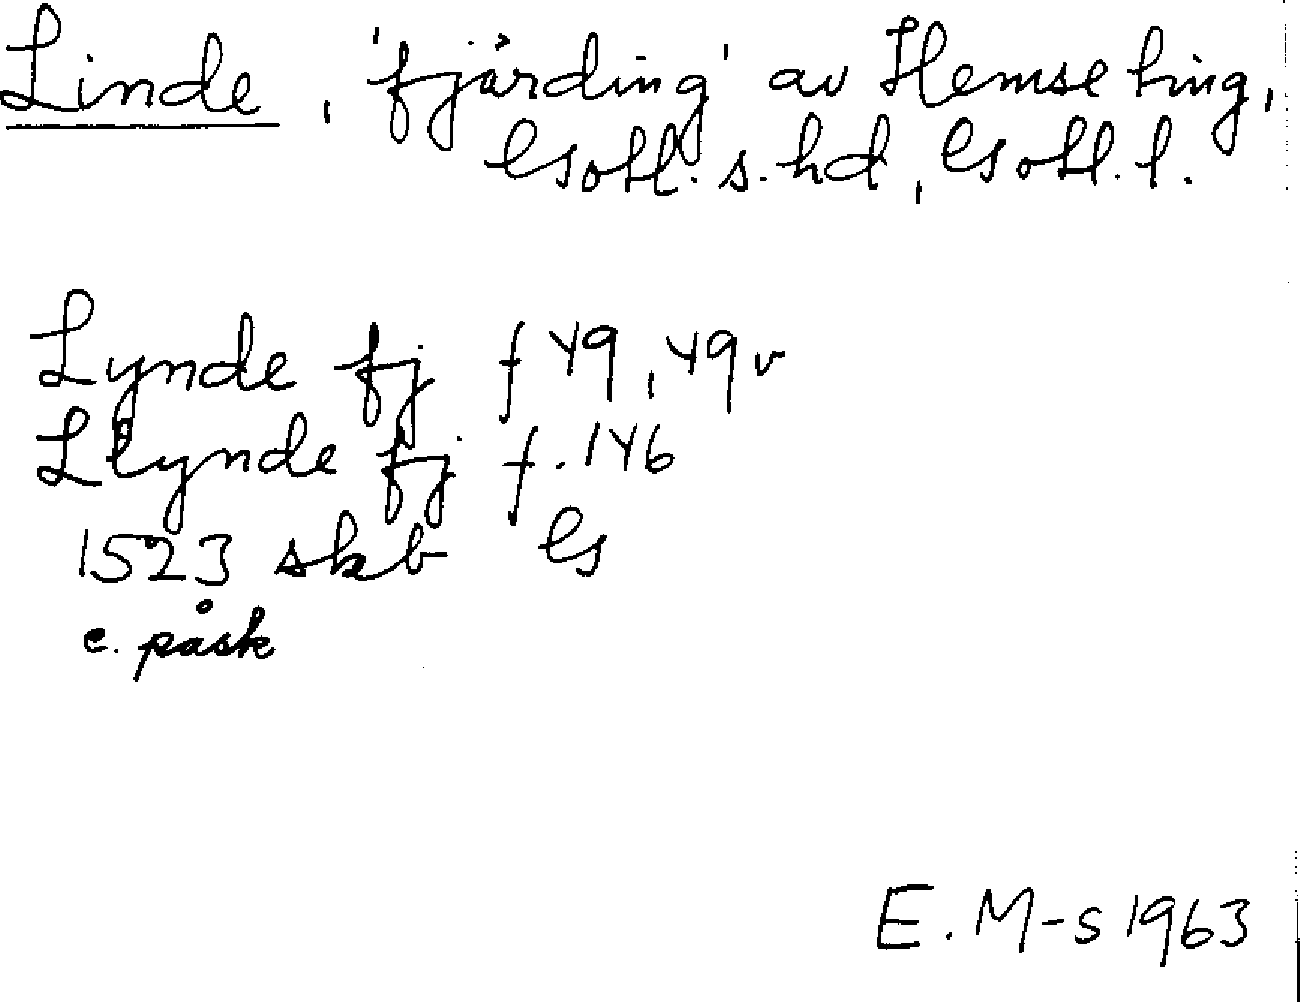 Linde, 'fjärding' av Hemse ting,
Gotl. s. hd, Gotl. l.
Lynde fj f 49, 49 v
Llynde fj f. 146
1523 skb G
e. påsk
E. M-s 1963